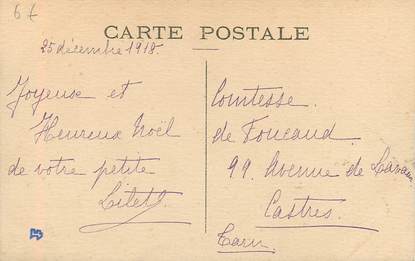 6€
CARTE POSTALE
25 décembre 1918.
Joyeuse et
Heureux Noël
de votre petite
Comtesse.
de Foucaud.
99. Avenue de Lavaur
Castres.
Tarn